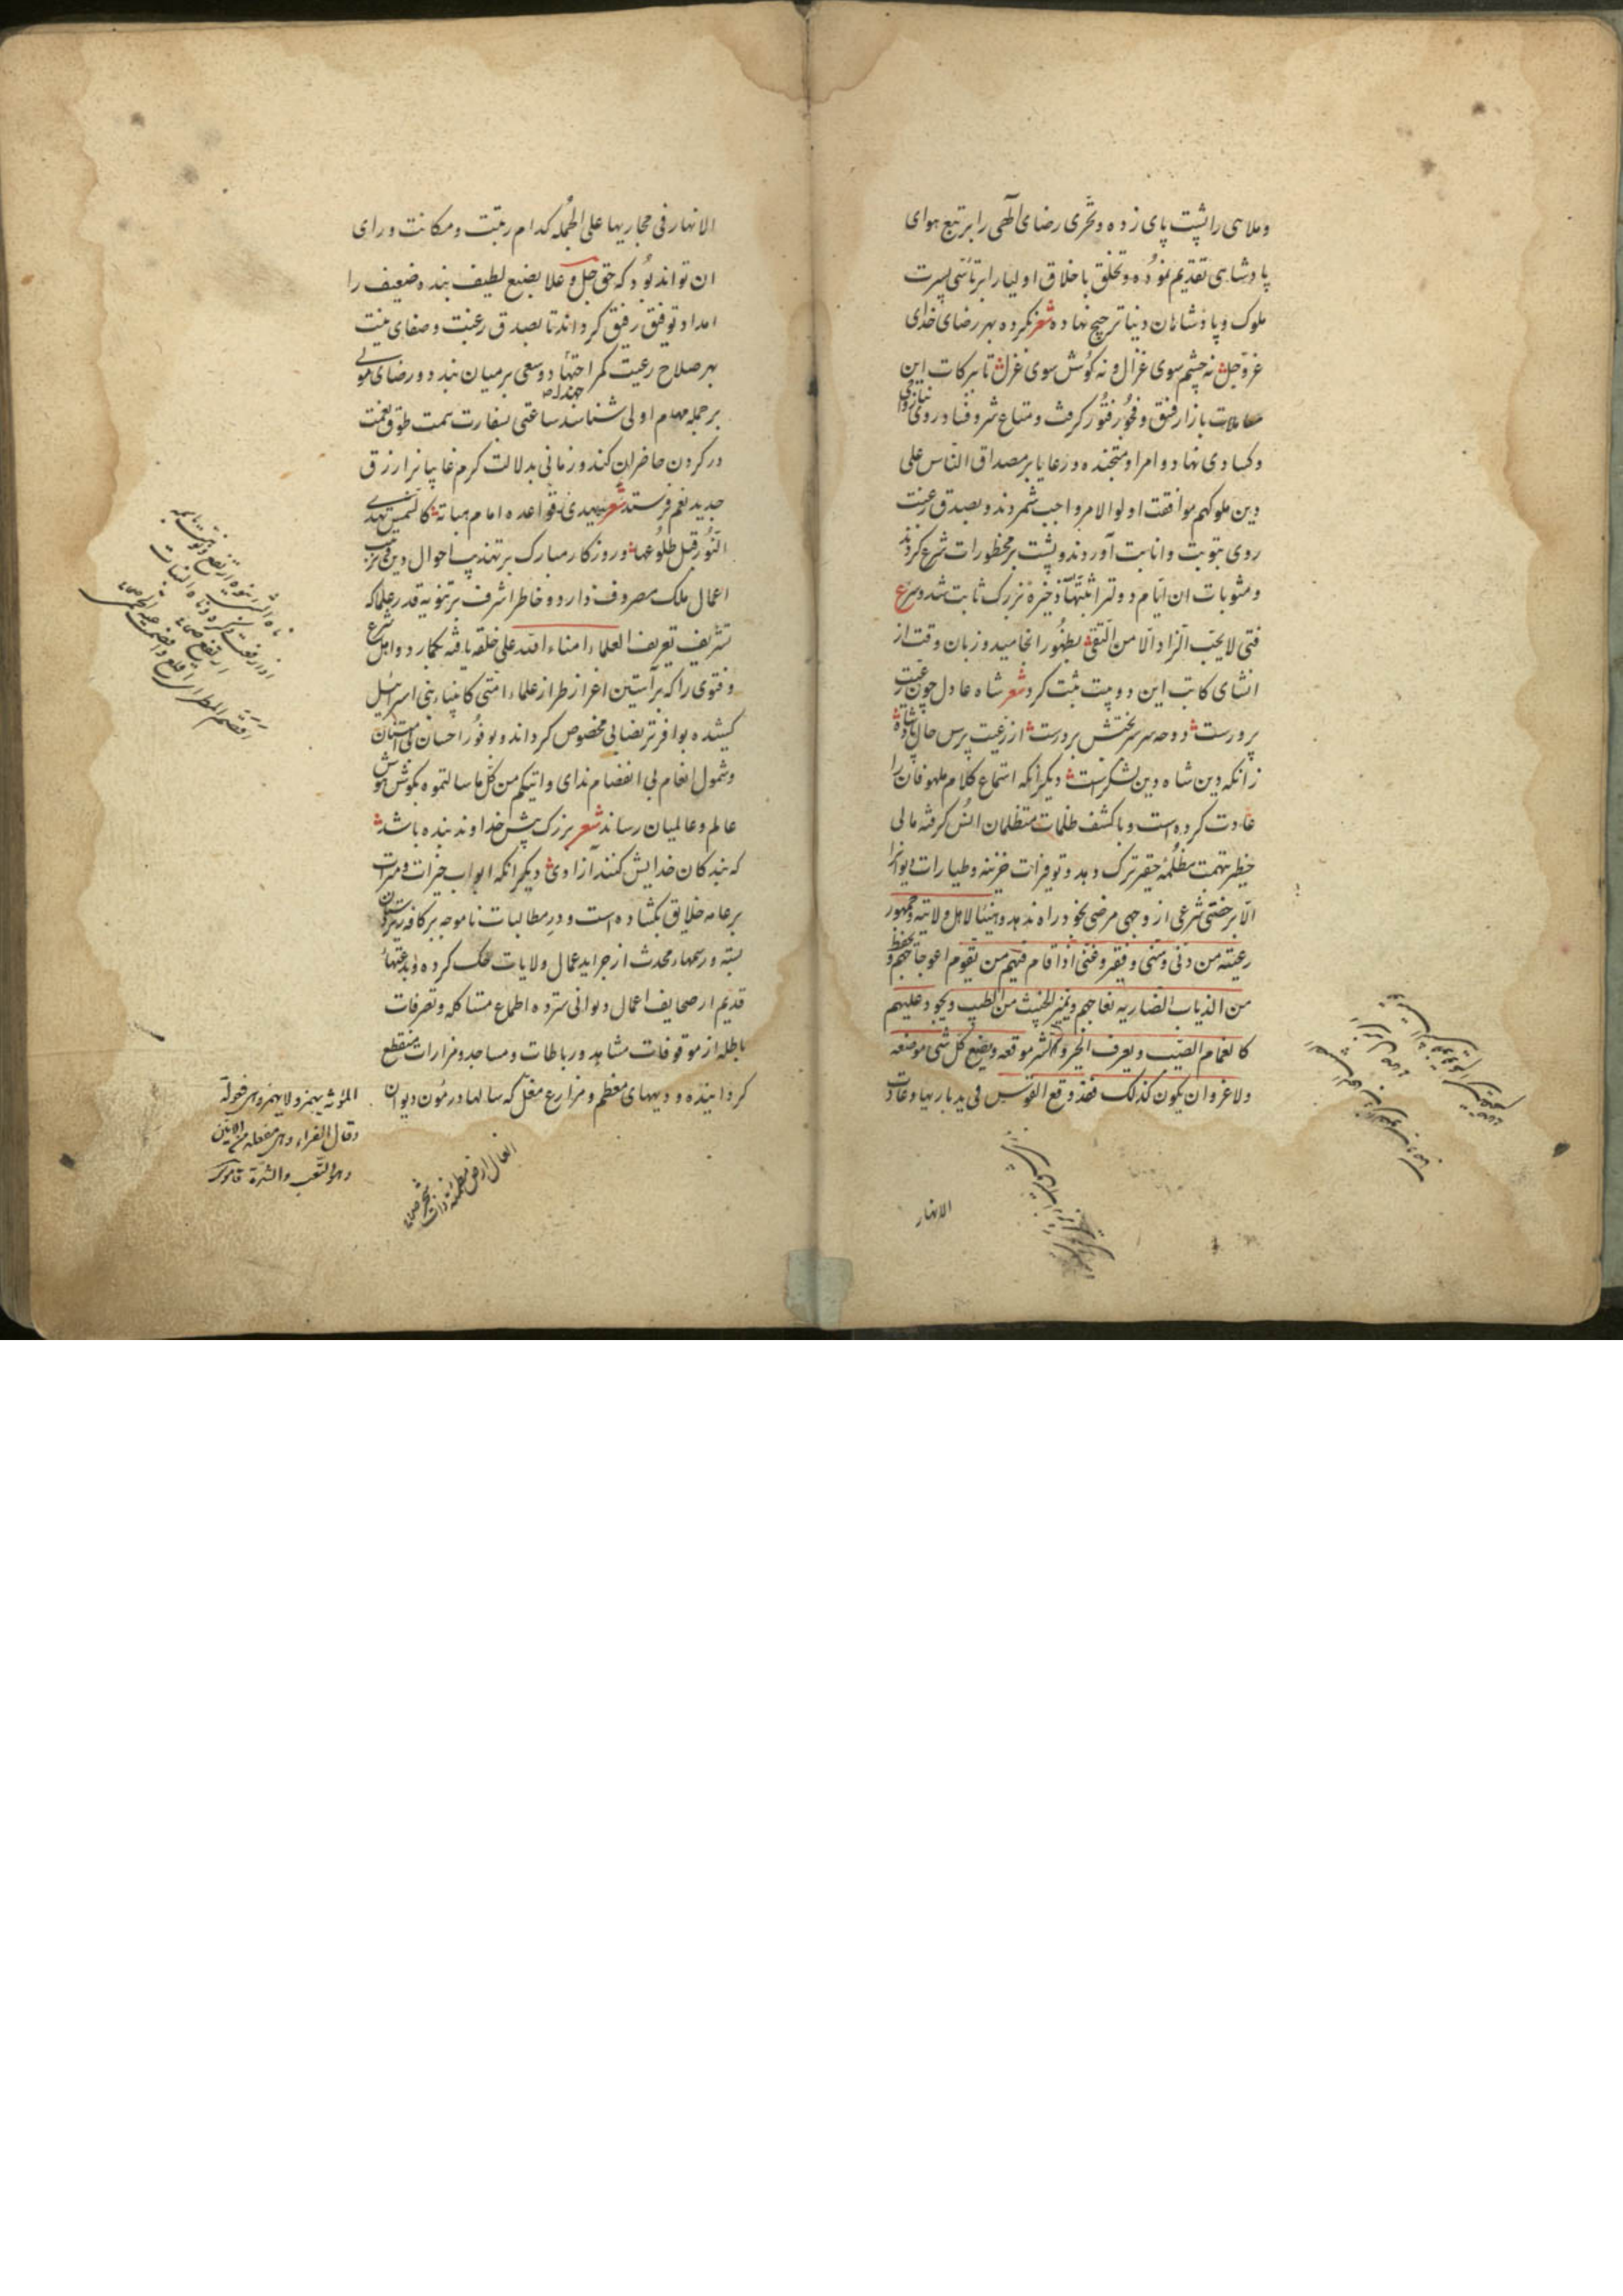 وملاهی را پشت پای زده و تحری رضای الهی را بر تتبع هوای
پادشاهی تقدیم نموده و تخلق باخلاق اولیا را بر تأسی بسیرت
ملوک و پادشاهان دنیا ترجیح نهاده شعر نکرده بهر رضای خدای
عزوجل نه چشم سوی غزال و نه کوش سوی غزل تا ببرکات این
معاملات بازار فسق و فجور فتور کرفت و متاع شر و فساد روی
وکسادی نهاد و امرا و متجنده و رعایا بر مصداق الناس علی
دین ملوکهم موافقت اولوا الامر واجب شمردند و بصدق رغبت
روی بتوبت و انابت آوردند و پشت بر محظورات شرع کردند
و مثوبات ان ایام دولترا ذخیرهٔ بزرک ثابت شد و
فتی لا یحب الزاد الا من التقی بظهور انجامید و زبان وقت از
انشای کاتب این دو بیت ثبت کرد شعر شاه عادل چون رعیت
پرورست دوحه سرسبزبختش برورست از رعیت پرس حال پادشاه
زانکه دین شاه دین لشکرست دیکر انکه استماع کلام ملهوفان را
عادت کرده است و با کشف ظلمات متظلمان انس کرفته مالی
خطیر بتهمت مظلمه حقیر ترک دهد و توفیرات خزینه و طیارات دیوان را
الا برخصتی شرعی از وجهی مرضی بخود راه ندهد وهنیئا لاهل ولایته وجمهور
رعیته من دنی وسنی وفقیر وغنی اذا قام فیهم من یقوم اعوجاجهم ویحفظ
من الذیاب الضاریه نعاجهم ویمیز الخبیث من الطیب ویجود علیهم
کالغمام الصیب ویعرف الخیر والشر موقعه ویضع کل شی موضعه
ولا غرو ان یکون کذلک فقد وقع القوس فی ید باریها وعادت
الانهار
الانهار فی مجاریها علی الجمله کدام رتبت و مکانت ورای
ان تواند بود که حق جل و علا بصنع لطیف بنده ضعیف را
امداد توفیق رفیق کرداند تا بصدق رغبت و صفای نیت
بهر صلاح رعیت کمر اجتهاد و سعی بر میان بندد و رضای مولی
بر جمله مهام اولی شناسد ساعتی بسفارت همت طوق نعمت
در کردن حاضران کند و زمانی بدلالت کرم غایبانرا رزق
جدید نعم فرستد شعر یهدی قواعده امام هباته کالشمس تهدی
النور قبل طلوعها و روزکار مبارک بر تهذیب احوال دین و ترتیب
اعمال ملک مصروف دارد و خاطر اشرف بر تنویه قدر علما که
تشریف تعریف العلماء امناء الله علی خلقه یافته بکمارد و اهل شرع
و فتوی را که بر آستین اعزاز طراز علماء امتی کانبیاء بنی اسرائیل
کشیده بوافر تر نصابی مخصوص کرداند و بوفور احسان بی امتنان
وشمول انعام بی انفصام ندای واتیکم من کل ما سالتموه بکوش هوش
عالم و عالمیان رساند شعر بزرک پیش خداوند بنده باشد
که بندکان خدایش کنند آزادی دیکر انکه ابواب خیرات و مبرات
بر عامه خلایق بکشاده است و در مطالبات ناموجه بر کافه
بسته و رسمهاء محدث از جراید عمال ولایات حک کرده و بدعتهاء
قدیم از صحایف اعمال دیوانی سترده اطماع متاکله و تصرفات
باطله از موقوفات مشاهد و رباطات و مساجد و مزارات منقطع
کردانیده و دیههای معظم و مزارع مغل که سالها در مؤن دیوان
المؤنة یهمز ولا یهمز وهی فعولة
وقال الفراء وهی مفعلة من الاین
وهو التعب والشدة قاموس